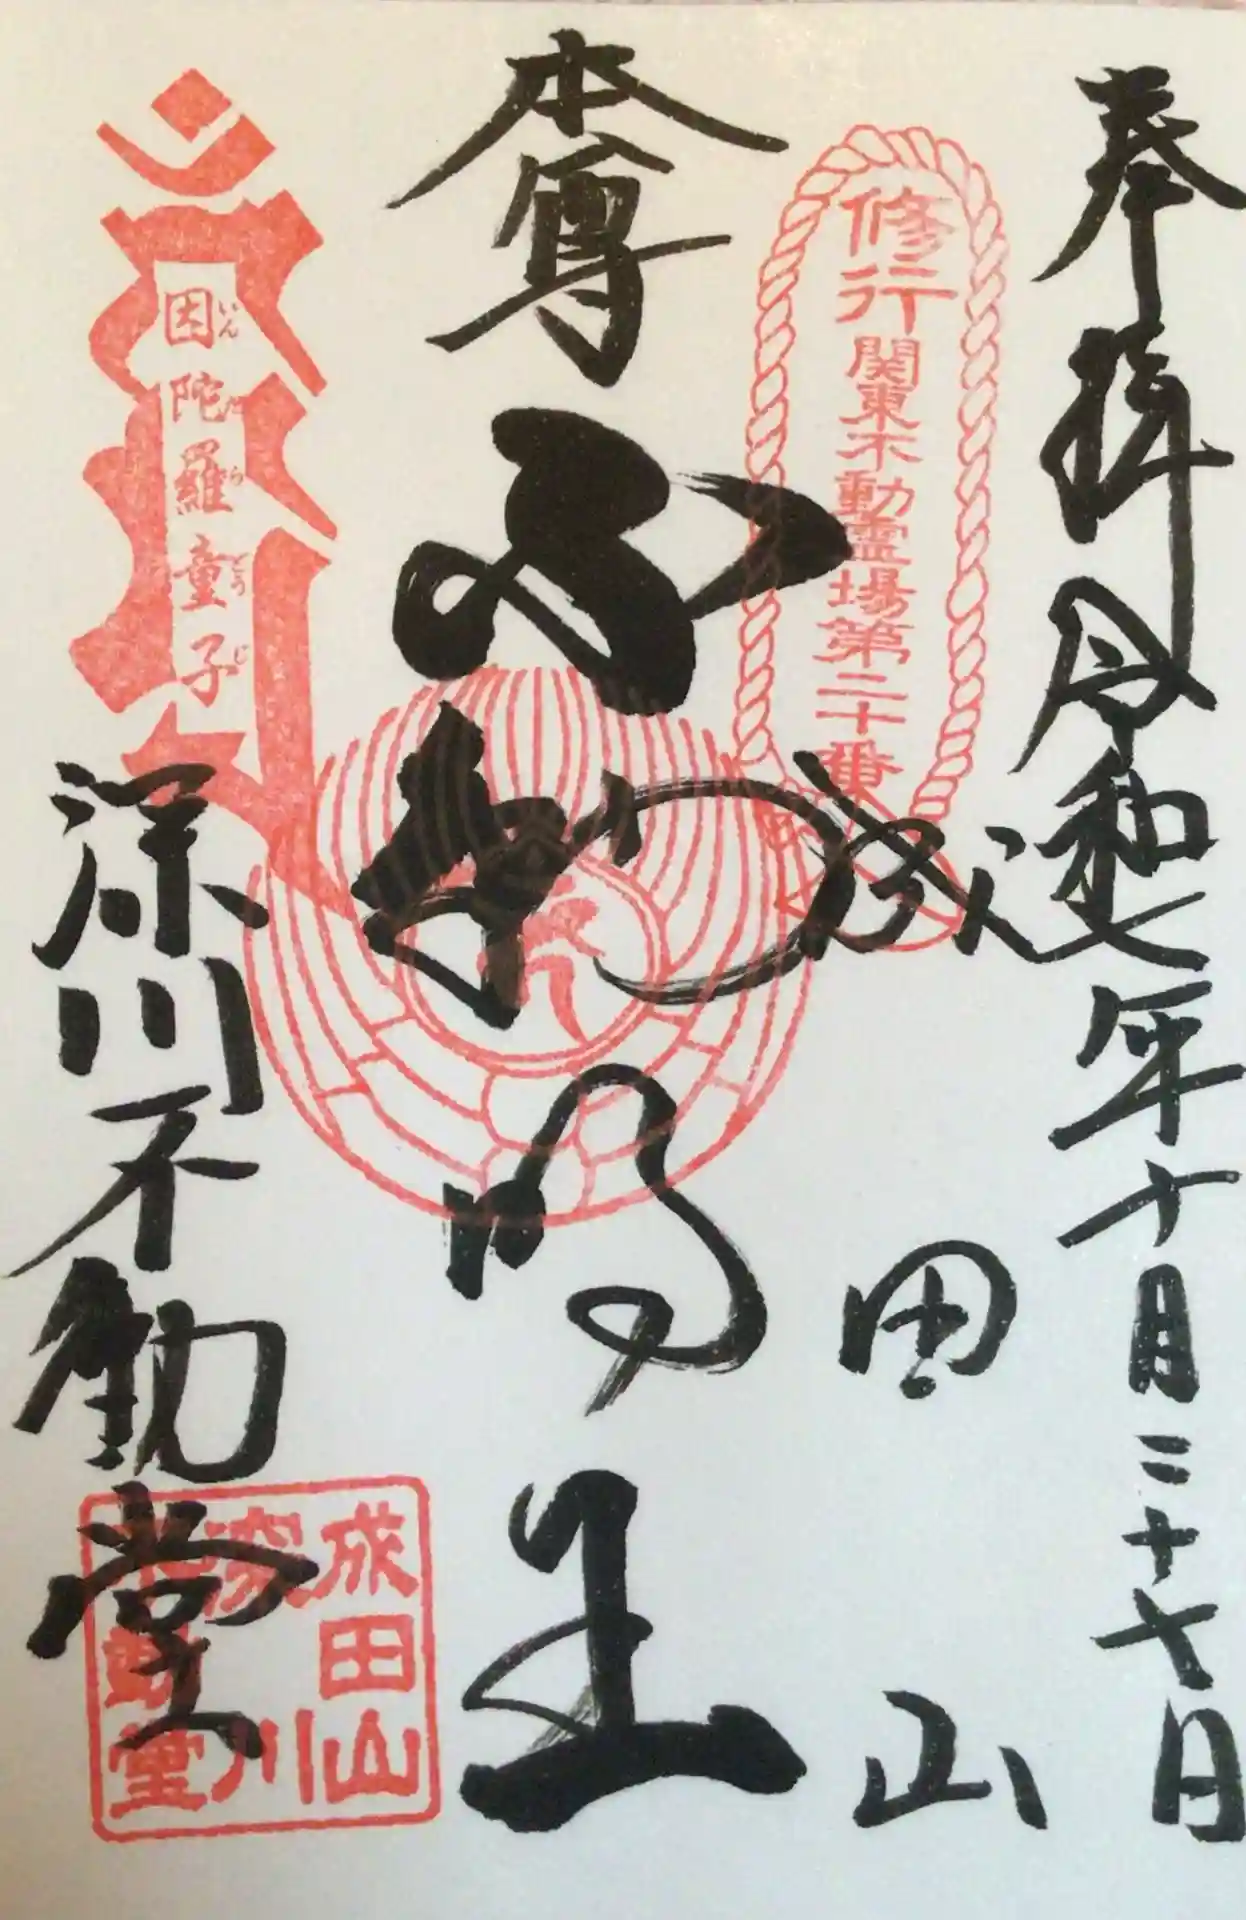 奉拝 令和七年十月二十七日
修行 関東不動霊場第二十番
成田山
本尊 不動明王
因陀羅童子
いんだらどうじ
深川不動堂
成田山
深川
不動堂